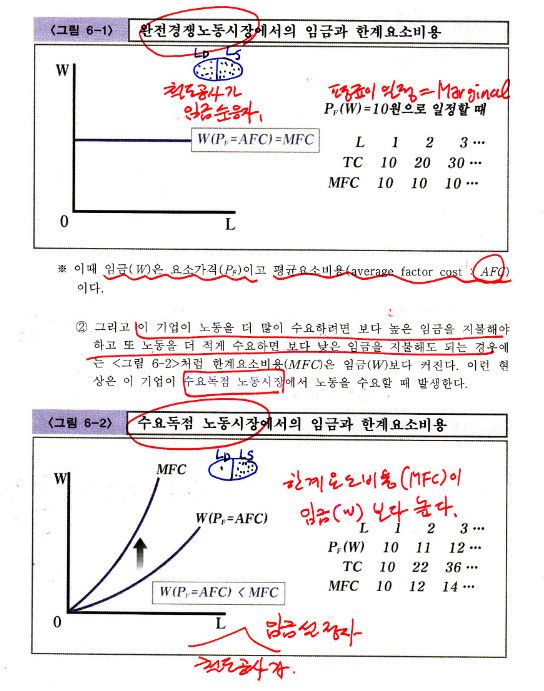 <그림 6-1> 완전경쟁노동시장에서의 임금과 한계요소비용
W
L_D L_S
철도공사가
임금순응자,
평균이 일정 = Marginal
P_F(W)=10원으로 일정할 때
W(P_F=AFC)=MFC
L 1 2 3 ···
TC 10 20 30 ···
MFC 10 10 10 ···
0 L
※ 이때 임금(W)은 요소가격(P_F)이고 평균요소비용(average factor cost : AFC)
이다.
② 그리고 이 기업이 노동을 더 많이 수요하려면 보다 높은 임금을 지불해야
하고 또 노동을 더 적게 수요하면 보다 낮은 임금을 지불해도 되는 경우에
는 <그림 6-2>처럼 한계요소비용(MFC)은 임금(W)보다 커진다. 이런 현
상은 이 기업이 수요독점 노동시장에서 노동을 수요할 때 발생한다.
<그림 6-2> 수요독점 노동시장에서의 임금과 한계요소비용
L_D L_S
W MFC
한계요소비용(MFC)이
임금(W) 보다 높다.
W(P_F=AFC)
L 1 2 3 ···
P_F(W) 10 11 12 ···
TC 10 22 36 ···
MFC 10 12 14 ···
W(P_F=AFC) < MFC
0 L
임금설정자
철도공사가